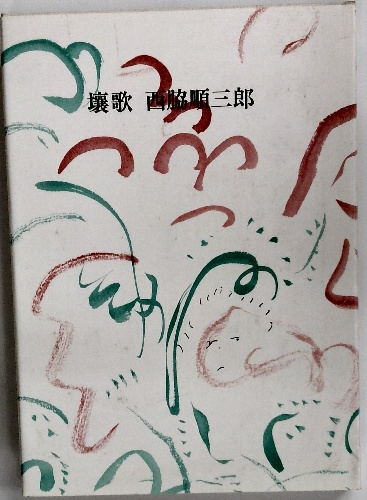 壤歌 西脇順三郎